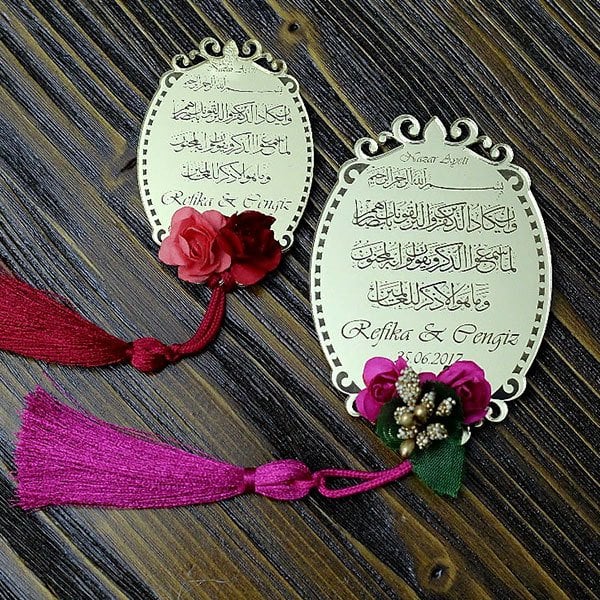 Nazar Ayeti
بسم الله الرحمن الرحيم
وان يكاد الذين كفروا ليزلقونك بابصارهم
لما سمعوا الذكر ويقولون انه لمجنون
وما هو الا ذكر للعالمين
Refika & Cengiz
Nazar Ayeti
بسم الله الرحمن الرحيم
وان يكاد الذين كفروا ليزلقونك بابصارهم
لما سمعوا الذكر ويقولون انه لمجنون
وما هو الا ذكر للعالمين
Refika & Cengiz
25.06.2017